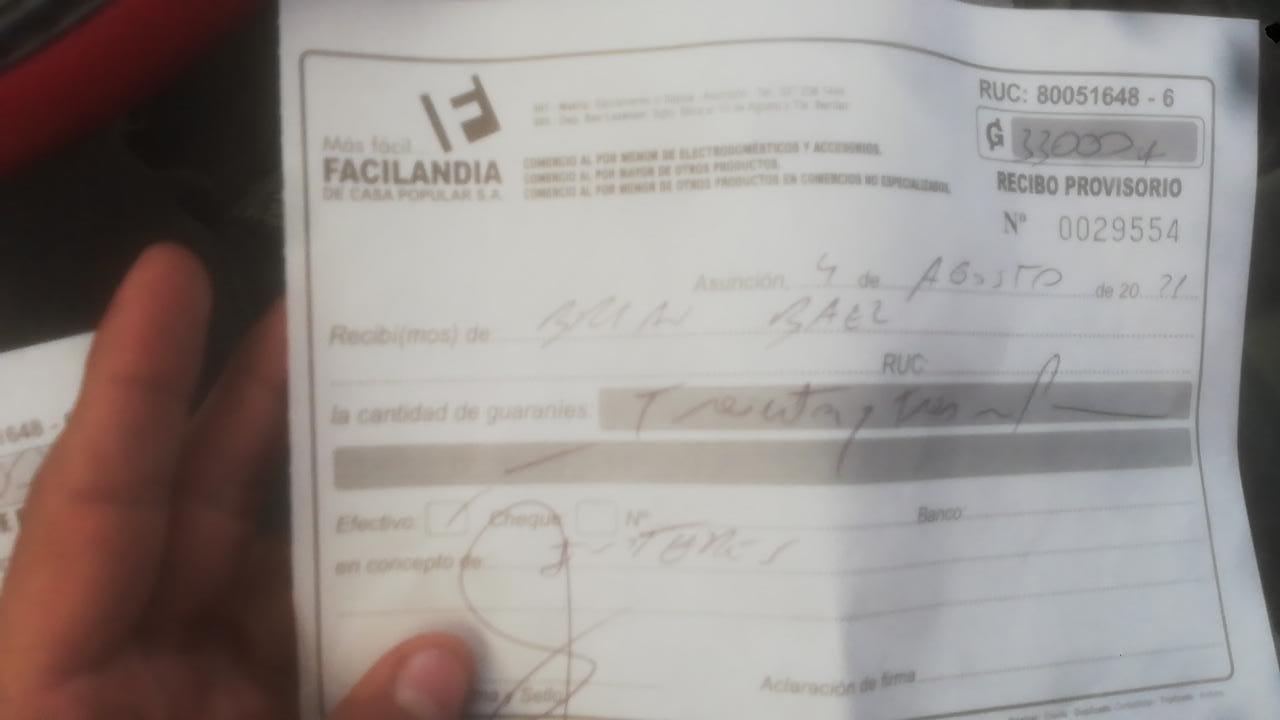 RUC: 80051648 - 6
Más fácil
FACILANDIA
DE CASA POPULAR S.A.
COMERCIO AL POR MENOR DE ELECTRODOMÉSTICOS Y ACCESORIOS.
COMERCIO AL POR MAYOR DE OTROS PRODUCTOS.
COMERCIO AL POR MENOR DE OTROS PRODUCTOS EN COMERCIOS NO ESPECIALIZADOS.
₲ 33000
RECIBO PROVISORIO
Nº 0029554
Asunción, 4 de AGOSTO de 20 21
Recibí(mos) de BRIAN BAEZ
RUC
la cantidad de guaranies: Treinta y tres
Efectivo Cheque Nº Banco:
en concepto de INTERES
y Sello
Aclaración de firma
1648 -